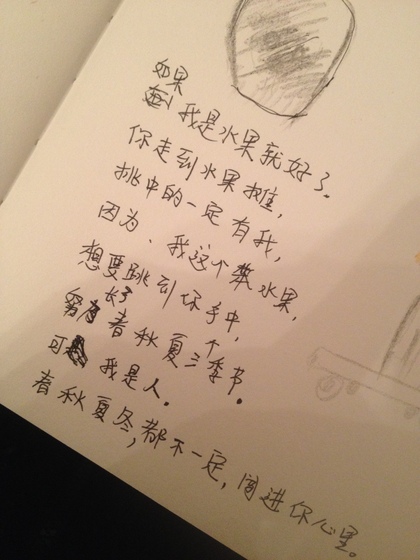 如果
我是水果就好了.
你走到水果摊,
挑中的一定有我,
因为、我这个笨水果,
想要跳到你手中,
努力长了春秋夏三个季节.
可 我是人.
春秋夏冬,都不一定,闯进你心里。